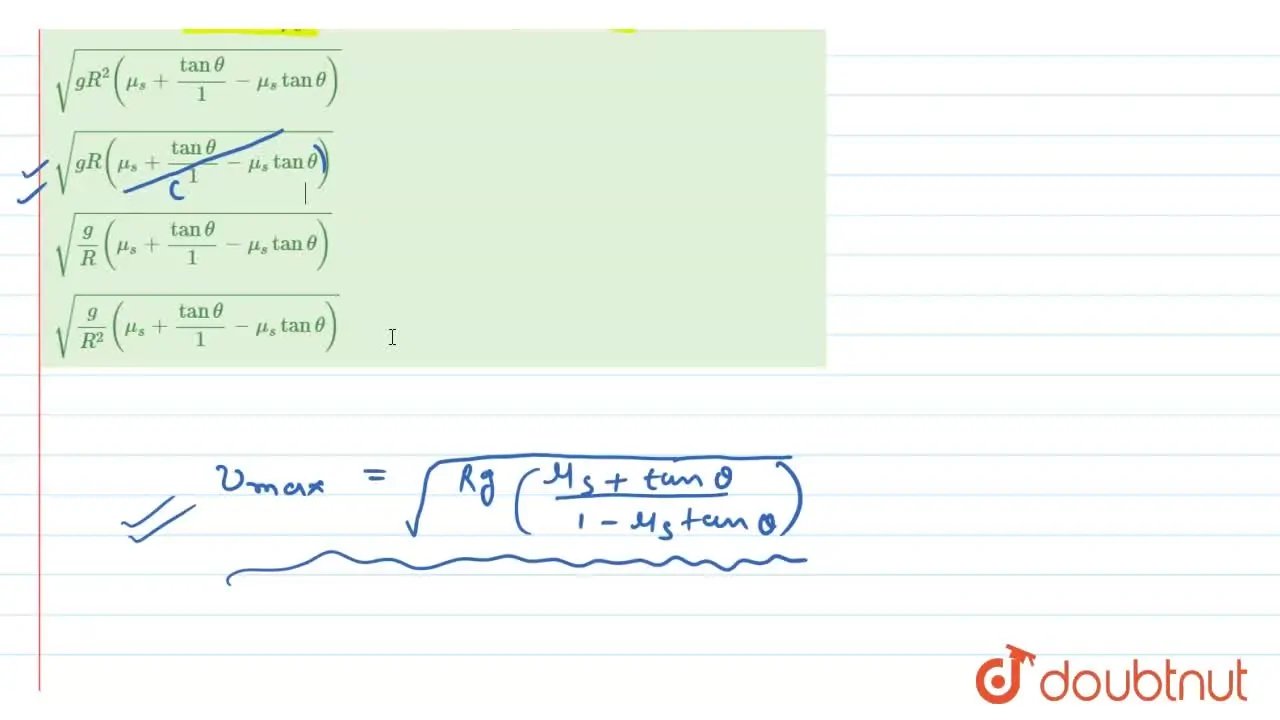 √(gR²(μₛ + tanθ/1 − μₛ tanθ))
√(gR(μₛ + tanθ/1 − μₛ tanθ))
c
√(g/R(μₛ + tanθ/1 − μₛ tanθ))
√(g/R²(μₛ + tanθ/1 − μₛ tanθ))
v max = √(Rg((μs + tanθ)/(1 − μs tanθ)))
doubtnut